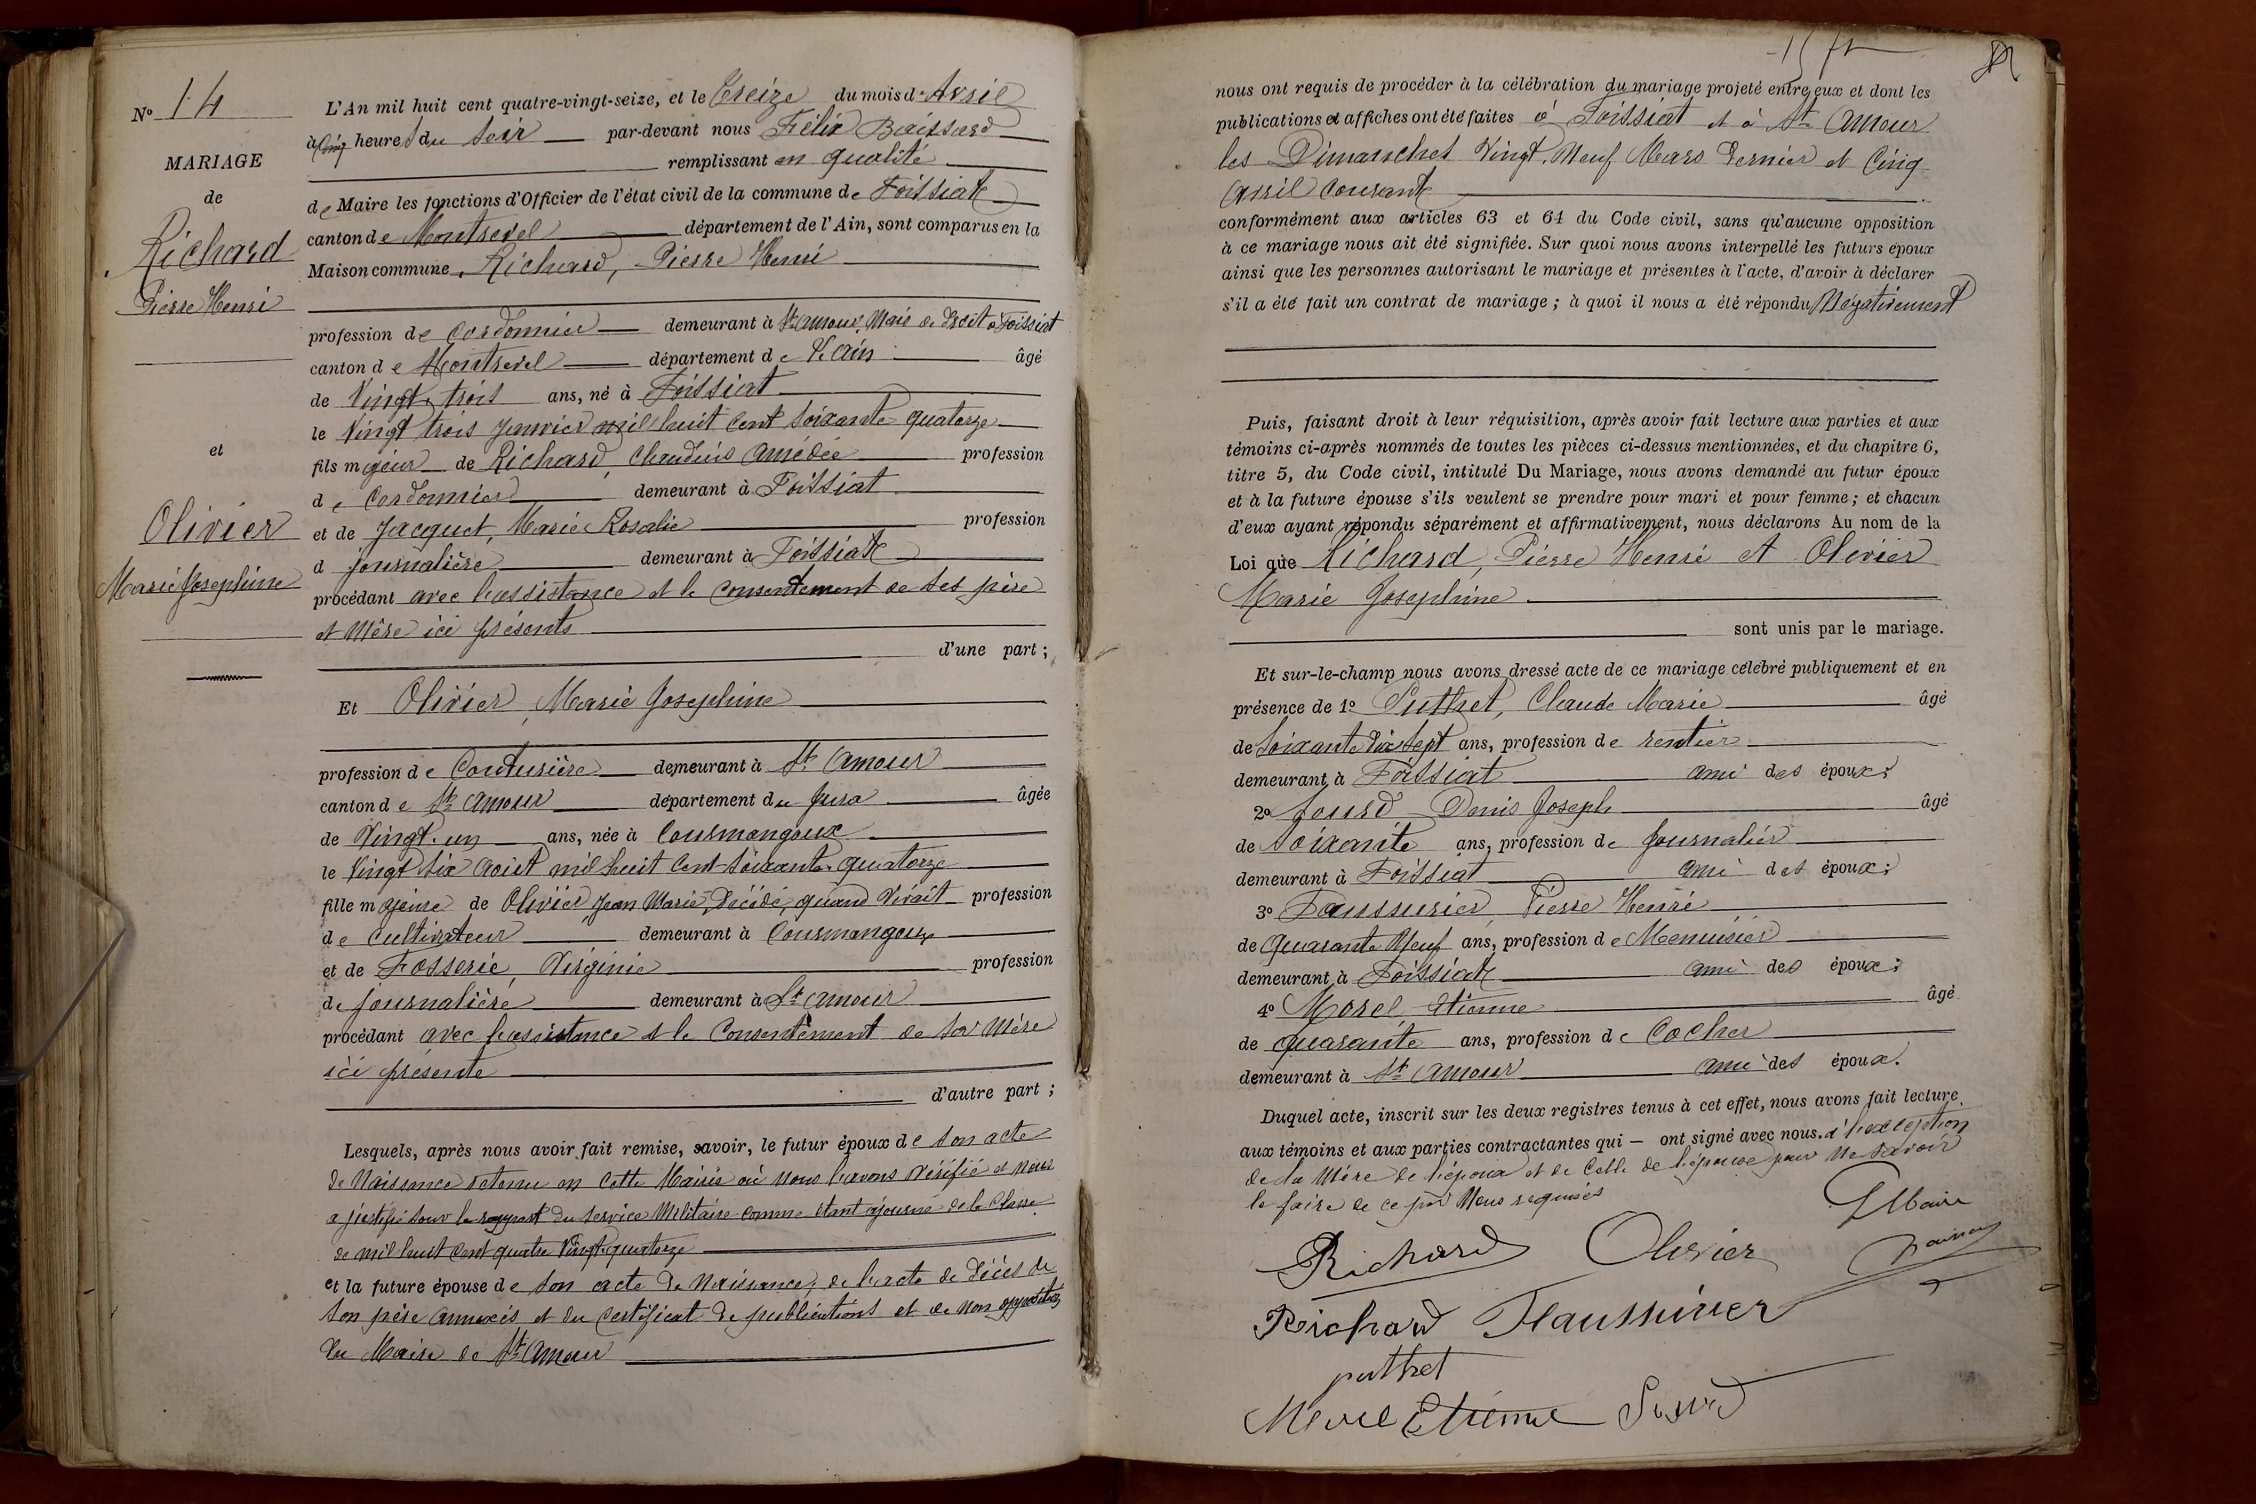 No 14
MARIAGE
de
Richard
Pierre Henri
et
Olivier
Marie Josephine
L'An mil huit cent quatre-vingt-seize, et le Treize du mois d'Avril
à Cinq heures du Soir par-devant nous Félix Boissard
remplissant en qualité
de Maire les fonctions d'Officier de l'état civil de la commune de Foissiat
canton de Montrevel département de l'Ain, sont comparus en la
Maison commune, Richard, Pierre Henri
profession de Cordonnier demeurant à St Amour, Mais de Droit à Foissiat
canton de Montrevel département de L'Ain âgé
de Vingt trois ans, né à Foissiat
le Vingt trois Janvier mil huit Cent Soixante quatorze
fils majeur de Richard, Claudius Amédée profession
de Cordonnier demeurant à Foissiat
et de Jacquet, Marie Rosalie profession
d journalière demeurant à Foissiat
procédant avec l'assistance et le Consentement de Ses père
et Mère ici présents
d'une part ;
Et Olivier, Marie Josephine
profession de Couturière demeurant à St Amour
canton de St Amour département du Jura âgée
de Vingt-un ans, née à Courmangoux
le Vingt Six Août mil huit Cent Soixante quatorze
fille majeure de Olivier Jean Marie, Décédé, quand Vivait profession
de Cultivateur demeurant à Courmangoux
et de Fosserie, Virginie profession
de journalière demeurant à St Amour
procédant avec l'assistance et le Consentement de Sa Mère
ici présente
d'autre part ;
Lesquels, après nous avoir fait remise, savoir, le futur époux de Son acte
de Naissance retenu en Cette Mairie où Nous l'avons Vérifié et Nous
a justifié sous le rapport du Service Militaire Comme étant ajourné de la Classe
de mil huit Cent quatre Vingt quatorze
et la future épouse de Son acte de Naissance, de l'acte de Décès de
Son père annexés et du Certificat de publications et de Non opposition
du Maire de St Amour
nous ont requis de procéder à la célébration du mariage projeté entre eux et dont les
publications et affiches ont été faites à Foissiat et à St Amour
les Dimanches Vingt-Neuf Mars Dernier et Cinq
Avril Courant
conformément aux articles 63 et 64 du Code civil, sans qu'aucune opposition
à ce mariage nous ait été signifiée. Sur quoi nous avons interpellé les futurs époux
ainsi que les personnes autorisant le mariage et présentes à l'acte, d'avoir à déclarer
s'il a été fait un contrat de mariage ; à quoi il nous a été répondu Négativement
Puis, faisant droit à leur réquisition, après avoir fait lecture aux parties et aux
témoins ci-après nommés de toutes les pièces ci-dessus mentionnées, et du chapitre 6,
titre 5, du Code civil, intitulé Du Mariage, nous avons demandé au futur époux
et à la future épouse s'ils veulent se prendre pour mari et pour femme ; et chacun
d'eux ayant répondu séparément et affirmativement, nous déclarons Au nom de la
Loi que Richard, Pierre Henri Et Olivier
Marie Josephine
sont unis par le mariage.
Et sur-le-champ nous avons dressé acte de ce mariage célébré publiquement et en
présence de 1o Puthet, Claude Marie âgé
de Soixante Dix Sept ans, profession de rentier
demeurant à Foissiat ami des époux ;
2o Sourd Denis Joseph âgé
de Soixante ans, profession de Journalier
demeurant à Foissiat ami des époux ;
3o Faussurier, Pierre Henri
de Quarante Neuf ans, profession de Menuisier
demeurant à Foissiat ami des époux ;
4o Morel Etienne âgé
de quarante ans, profession de Cocher
demeurant à St Amour ami des époux.
Duquel acte, inscrit sur les deux registres tenus à cet effet, nous avons fait lecture
aux témoins et aux parties contractantes qui – ont signé avec nous, à l'exception
de la Mère de l'époux et de Celle de l'épouse pour Ne Savoir
le faire de ce par Nous requises
Le Maire
Richard Olivier
Boissard
Richard Faussurier
puthet
Morel Etienne Sourd